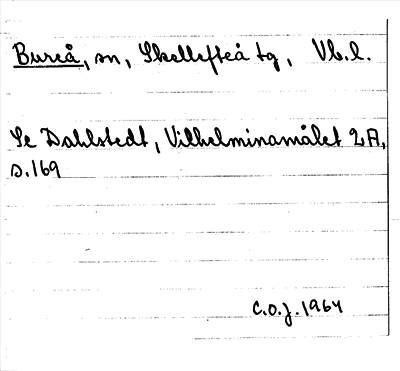 Bureå, sn, Skellefteå tg, Vb.l.
Se Dahlstedt, Vilhelminamålet 2A,
s.169
C.O.J. 1964